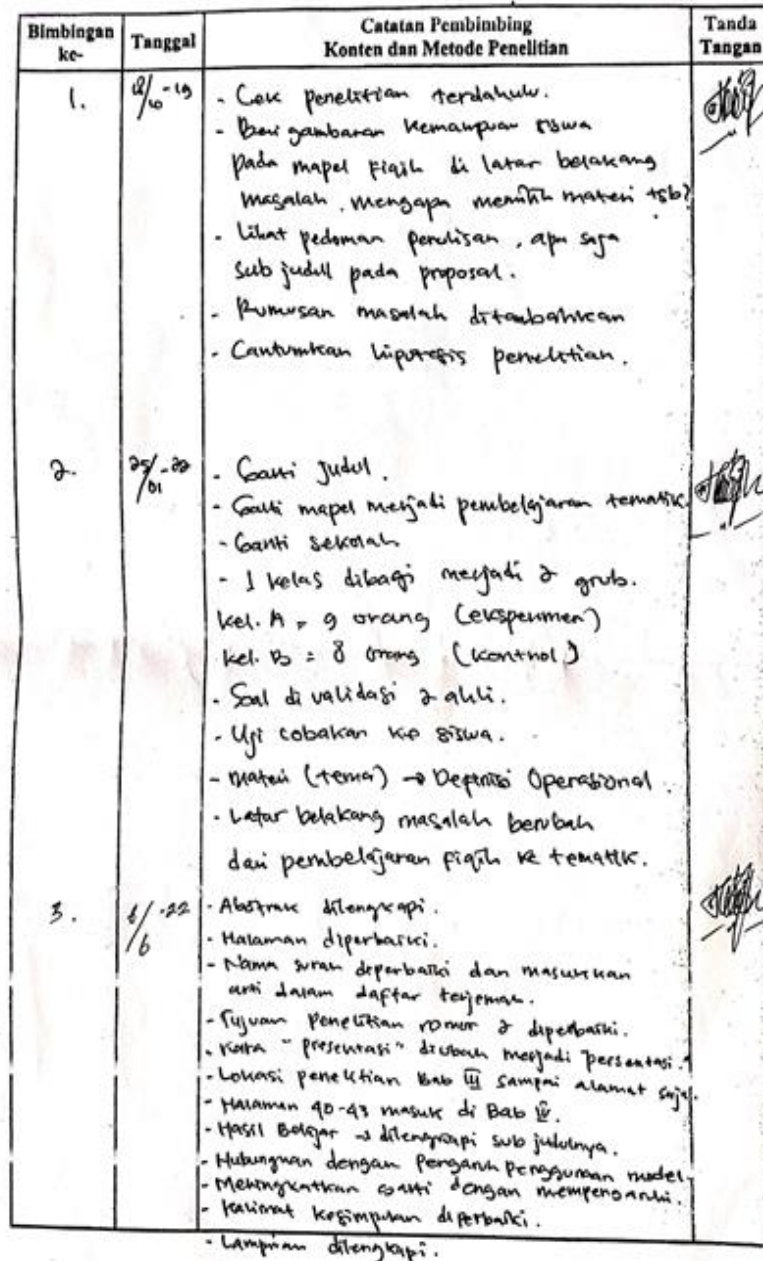 Bimbingan ke-
Tanggal
Catatan Pembimbing
Konten dan Metode Penelitian
Tanda Tangan
1.
-19
- Cek penelitian terdahulu.
- Beri gambaran kemampuan siswa
pada mapel Fiqih di latar belakang
masalah, mengapa memilih materi tsb?
- Lihat pedoman penulisan, apa saja
sub judul pada proposal.
- Rumusan masalah ditambahkan
- Cantumkan hipotesis penelitian.
2.
25/01 -22
- Ganti judul.
- Ganti mapel menjadi pembelajaran tematik.
- Ganti sekolah
- 1 kelas dibagi menjadi 2 grub.
kel. A = 9 orang (eksperimen)
kel. B = 8 orang (kontrol)
- Soal di validasi 2 ahli.
- Uji cobakan ke siswa.
- Materi (tema) → Definisi Operasional.
- Latar belakang masalah berubah
dari pembelajaran fiqih ke tematik.
3.
6/6 -22
- Abstrak dilengkapi.
- Halaman diperbaiki.
- Nama surah deperbaiki dan masukkan
arti dalam daftar terjemah.
- Tujuan Penelitian nomor 2 diperbaiki.
- Kata "presentasi" diubah menjadi "persentasi."
- Lokasi penelitian Bab III sampai alamat saja.
- Halaman 40-43 masuk di Bab IV.
- Hasil Belajar → dilengkapi sub judulnya.
- Hubungkan dengan Pengaruh penggunaan model.
- Meningkatkan ganti dengan mempengaruhi.
- Kalimat kesimpulan diperbaiki.
- Lampiran dilengkapi.